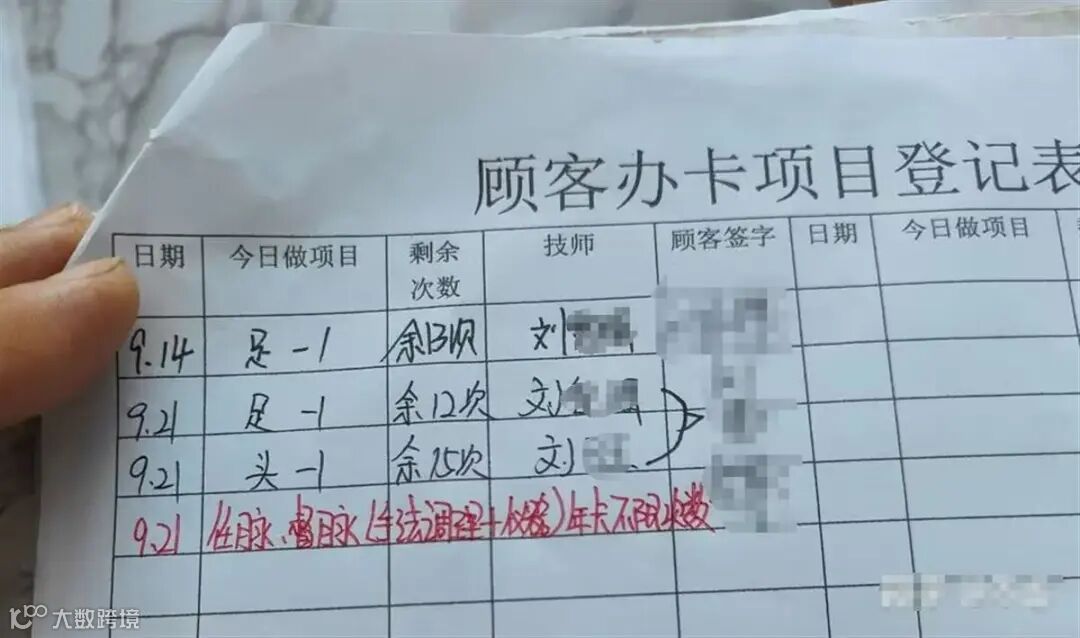 顾客办卡项目登记表
日期 今日做项目 剩余次数 技师 顾客签字 日期 今日做项目
9.14 足-1 余13次 刘
9.21 足-1 余12次 刘
9.21 头-1 余15次 刘
9.21 任脉、督脉(手法调理+仪器)年卡不限次数
大数跨境